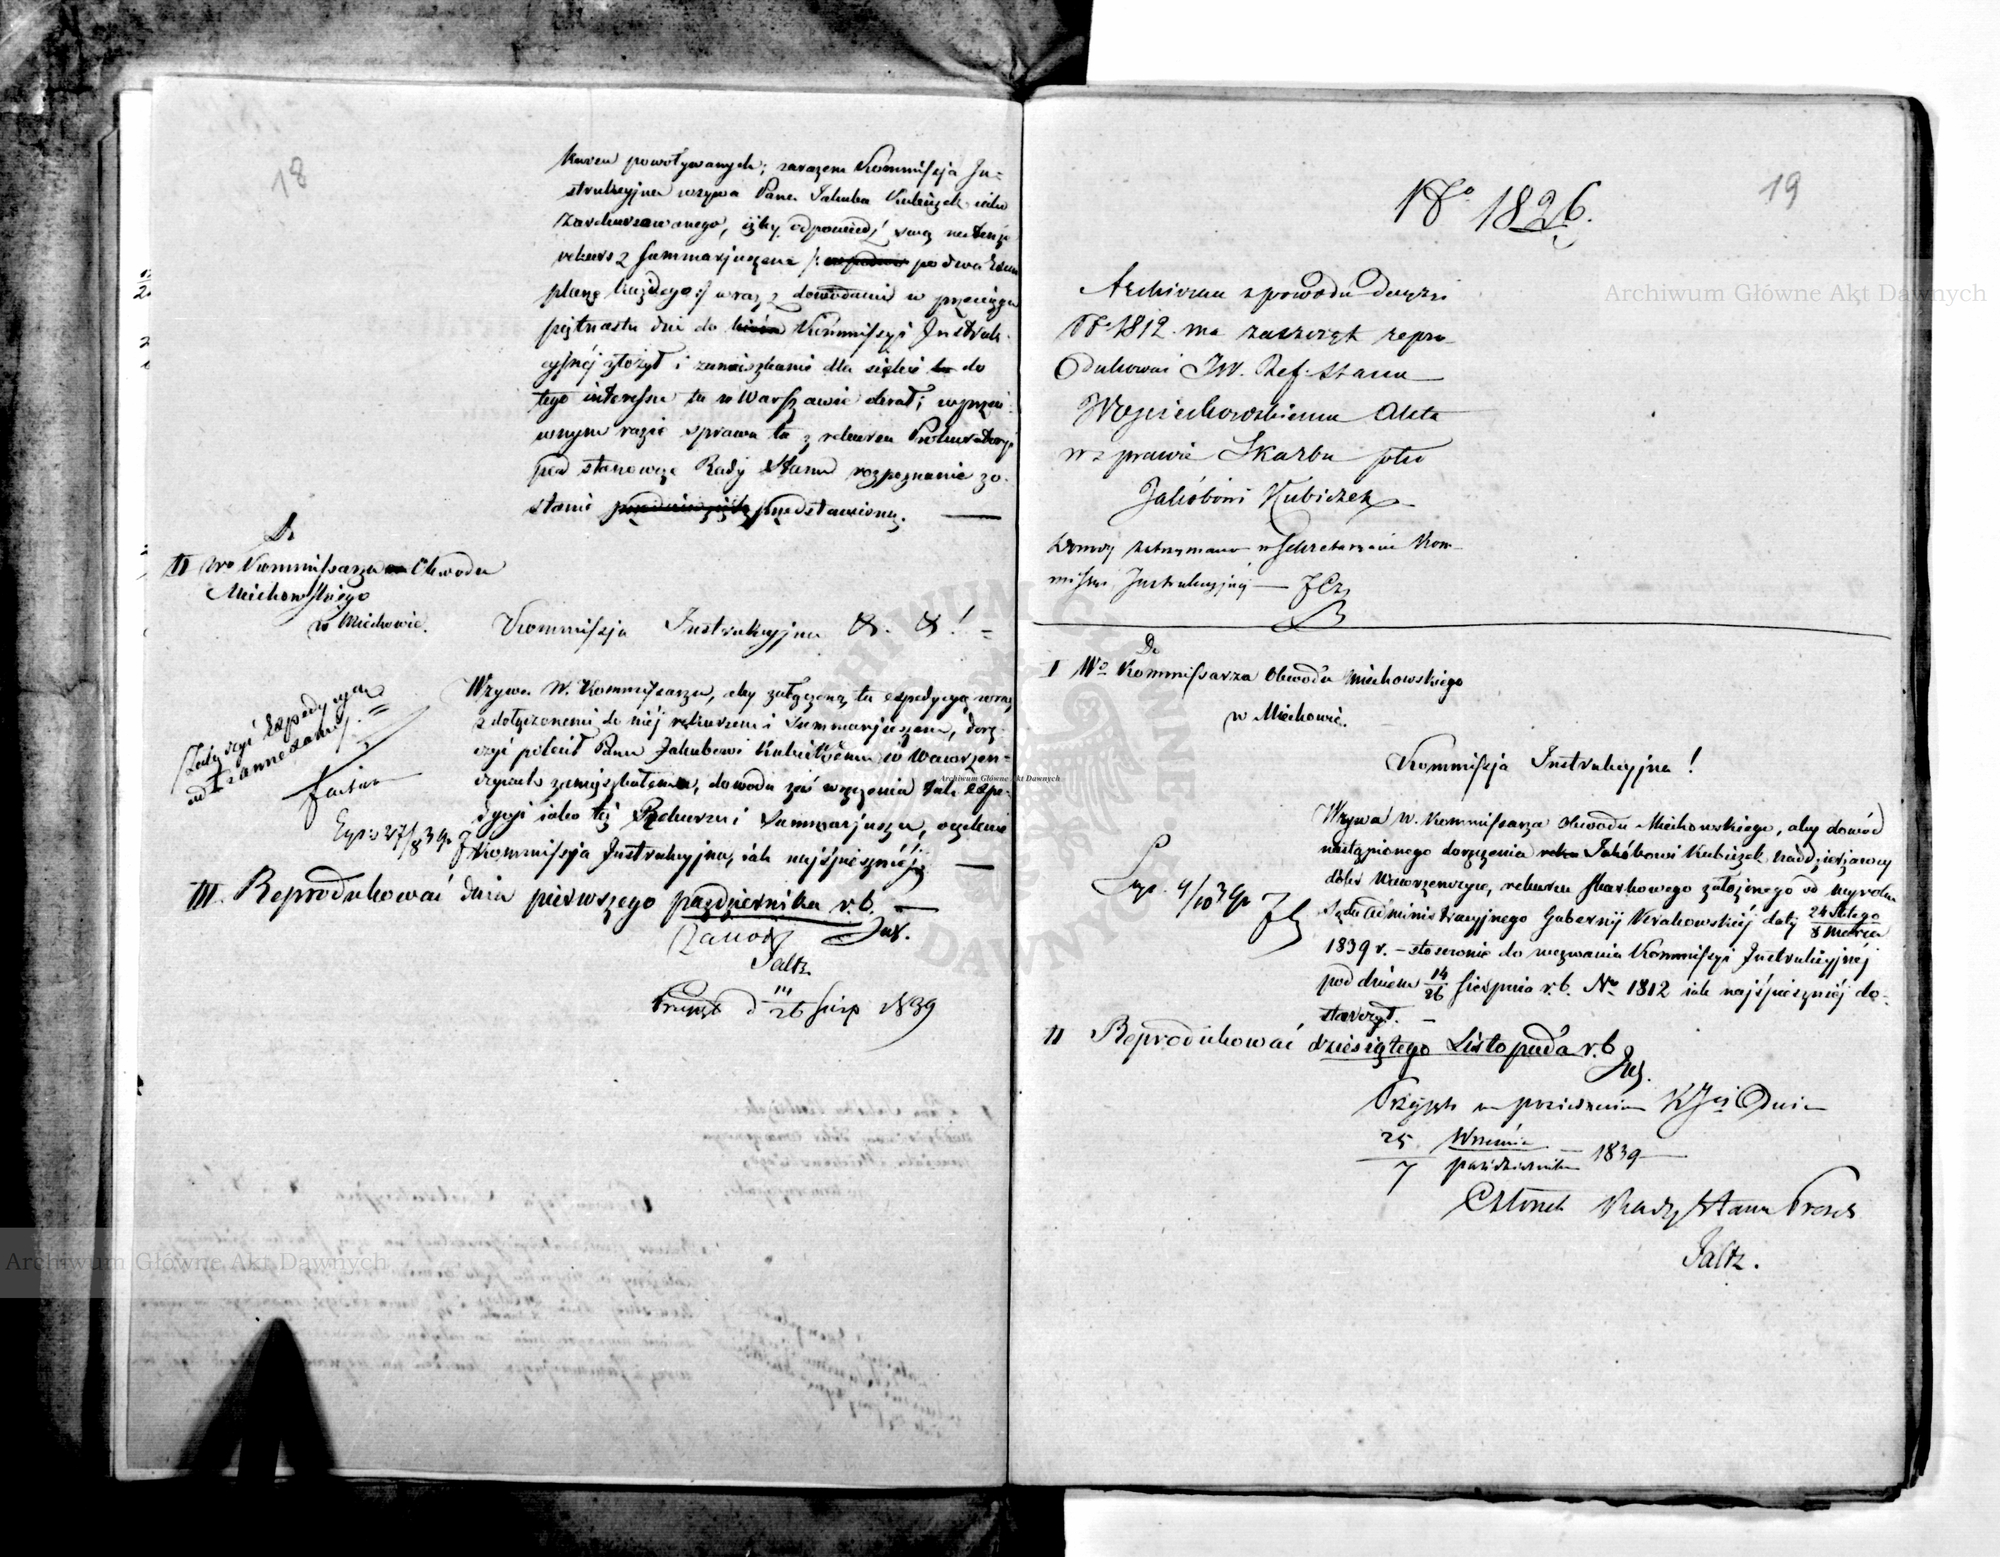 18
kursu powoływanych; zarazem Kommissja In-
strukcyjna wzywa Pana Jakuba Kubiczek iako
Zarekursowanego, iżby odpowiedź swą na tenże
rekurs z summarjuszem /: po dwa Exem
plarze każdego :/ wraz z dowodami w przeciągu
piętnastu dni do Kommissyi Instruk-
cyjnéj złożył i zamieszkanie dla siebie do
tego interessu tu w Warszawie obrał; w przeci-
wnym razie sprawa ta z rekursu Prokuratoryi
pod stanowcze Rady Stanu rozpoznanie zo-
stanie przedstawioną. —
Do
II Wo Kommissarza Obwodu
Miechowskiego
w Miechowie.
Kommissja Instrukcyjna &. &! =
Wzywa W. Kommissarza, aby załączoną tu expedycyą wraz
z dołączonemi do niéj rekursem i summarjuszem, dorę-
czyć polecił Panu Jakubowi Kubiczkowi w Wawrzeń-
czycach zamieszkałemu, dowodu zaś wręczenia tak expe-
dycyi iako też Rekursu i summarjuszu, oczekuie
Kommissja Instrukcyjna, iak najśpieszniéj. —
/Załączyć Expedycyą
ad I z annexami/. =
Exp: 27/8 39
III. Reprodukować dnia pierwszego października r. b. —
Saltz
Przyjęto d 14/26 Sierp 1839
19
No 1826.
Archiwum z powodu Decyzi
No 1812. ma zaszczyt repro
dukować JW. Ref: Stanu
Wojciechowskiemu Akta
w sprawie Skarbu p̃ko
Jakóbowi Kubiczek
dowody zatrzymano w Sekretariacie Kom-
missyi Instrukcyjnéj —
Do
I Wo Kommissarza Obwodu Miechowskiego
w Miechowie.
Kommissja Instrukcyjna!
Wzywa W. Kommissarza Obwodu Miechowskiego, aby dowód
nastąpionego doręczenia Jakóbowi Kubiczek naddzierżawcy
dóbr Wawrzeńczyce, rekursu skarbowego założonego od wyroku
Sądu Administracyjnego Gubernij Krakowskiéj daty 24 Lutego/8 Marca
1839 r. – stosownie do wezwania Kommissyi Instrukcyjnéj
pod dniem 14/26 Sierpnia r. b. No 1812 iak najśpieszniéj do-
starczył. —
Exp. 9/10 39
II Reprodukować dziesiątego Listopada r. b
Przyjęto na posiedzeniu KJej Dnia
25 Września/7 października 1839
Członek Rady Stanu Prezes
Saltz.
Archiwum Główne Akt Dawnych
Archiwum Główne Akt Dawnych
Archiwum Główne Akt Dawnych